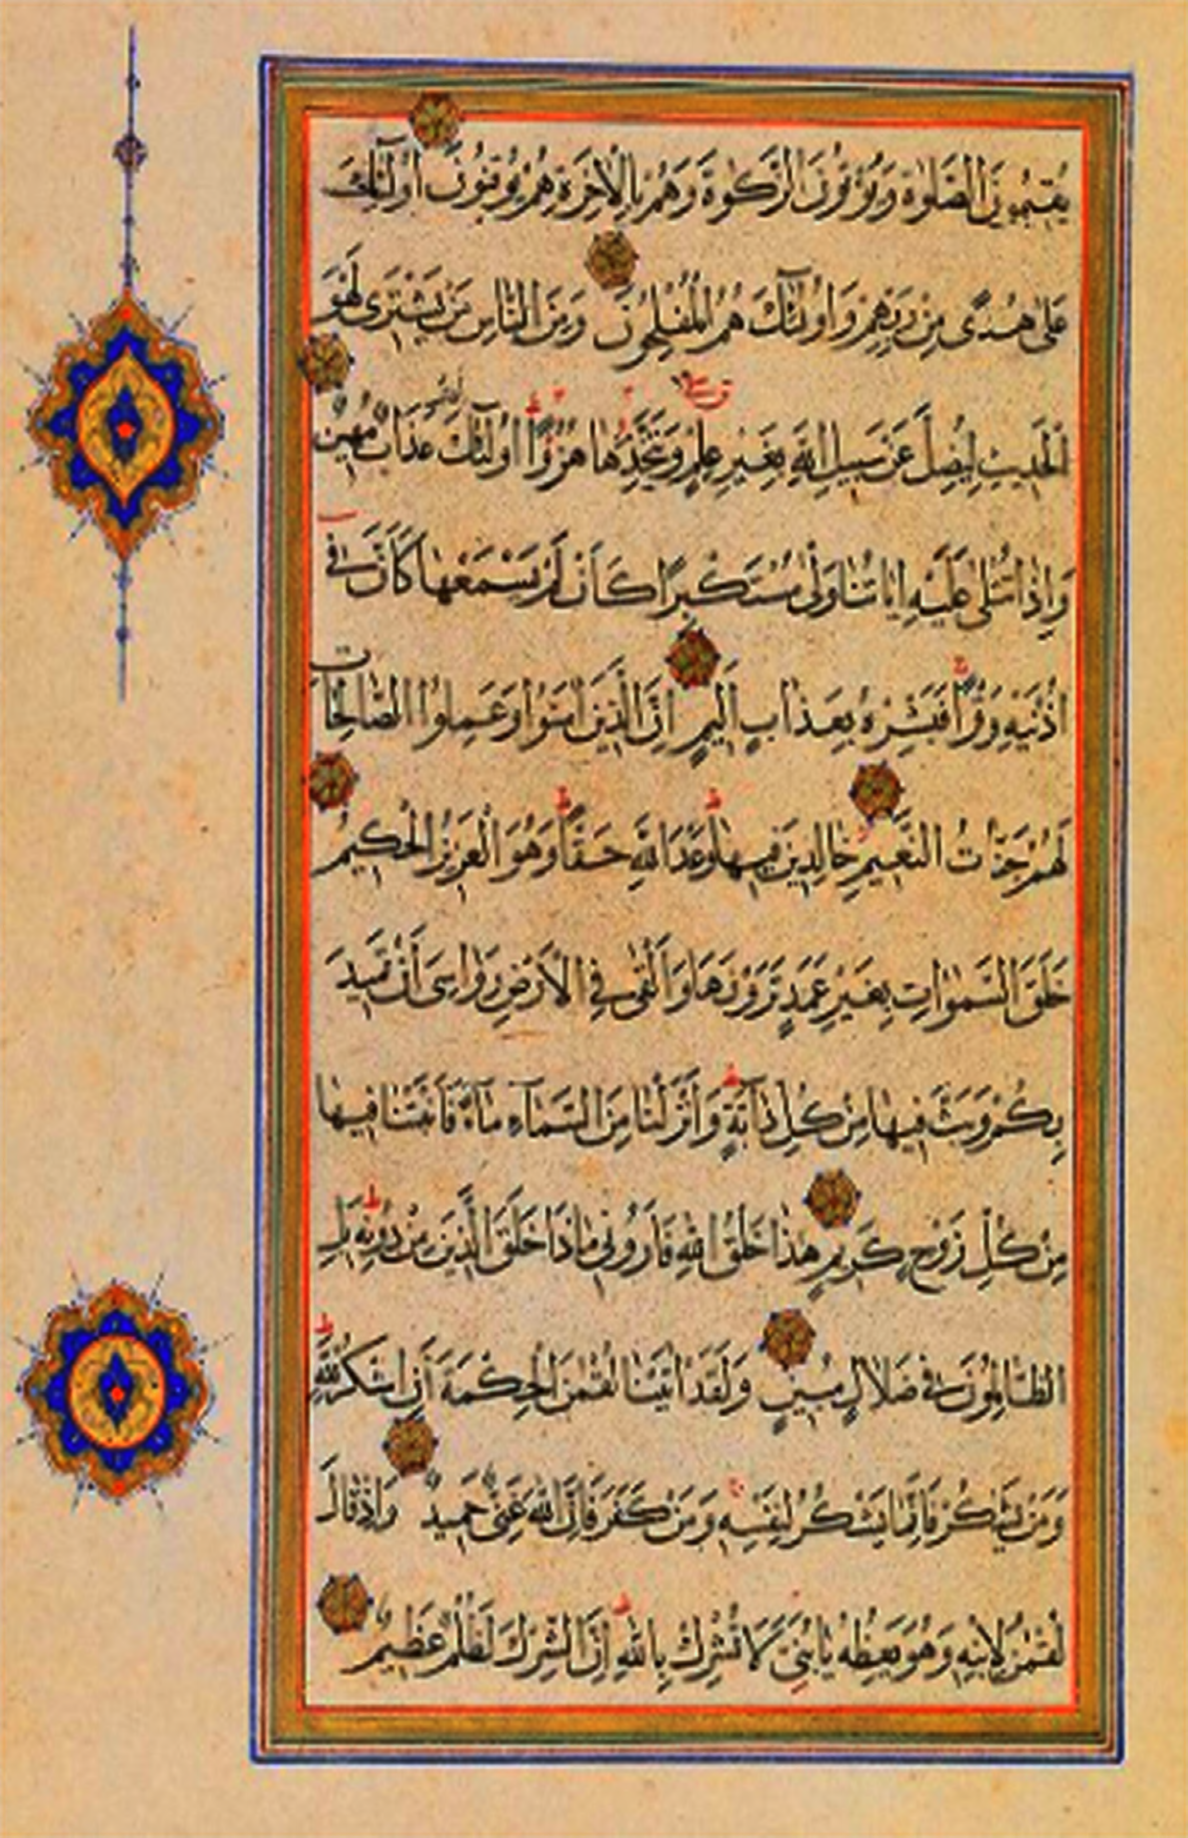 يُقيمُونَ الصَّلوٰةَ وَيُؤْتُونَ الزَّكوٰةَ وَهُمْ بِالْاٰخِرَةِ هُمْ يُوقِنُونَ اُولٰٓئِكَ
عَلٰى هُدًى مِنْ رَبِّهِمْ وَاُولٰٓئِكَ هُمُ الْمُفْلِحُونَ وَمِنَ النَّاسِ مَنْ يَشْتَرى لَهْوَ
الْحَديثِ لِيُضِلَّ عَنْ سَبيلِ اللّٰهِ بِغَيْرِ عِلْمٍ وَيَتَّخِذَهَا هُزُوًا اُولٰٓئِكَ لَهُمْ عَذَابٌ مُهينٌ
وَاِذَا تُتْلٰى عَلَيْهِ اٰيَاتُنَا وَلّٰى مُسْتَكْبِرًا كَاَنْ لَمْ يَسْمَعْهَا كَاَنَّ فى
اُذُنَيْهِ وَقْرًا فَبَشِّرْهُ بِعَذَابٍ اَليمٍ اِنَّ الَّذينَ اٰمَنُوا وَعَمِلُوا الصَّالِحَاتِ
لَهُمْ جَنَّاتُ النَّعيمِ خَالِدينَ فيهَا وَعْدَ اللّٰهِ حَقًّا وَهُوَ الْعَزيزُ الْحَكيمُ
خَلَقَ السَّمٰوَاتِ بِغَيْرِ عَمَدٍ تَرَوْنَهَا وَاَلْقٰى فِى الْاَرْضِ رَوَاسِىَ اَنْ تَميدَ
بِكُمْ وَبَثَّ فيهَا مِنْ كُلِّ دَابَّةٍ وَاَنْزَلْنَا مِنَ السَّمَآءِ مَآءً فَاَنْبَتْنَا فيهَا
مِنْ كُلِّ زَوْجٍ كَريمٍ هٰذَا خَلْقُ اللّٰهِ فَاَرُونى مَاذَا خَلَقَ الَّذينَ مِنْ دُونِه بَلِ
الظَّالِمُونَ فى ضَلَالٍ مُبينٍ وَلَقَدْ اٰتَيْنَا لُقْمٰنَ الْحِكْمَةَ اَنِ اشْكُرْ لِلّٰهِ
وَمَنْ يَشْكُرْ فَاِنَّمَا يَشْكُرُ لِنَفْسِه وَمَنْ كَفَرَ فَاِنَّ اللّٰهَ غَنِىٌّ حَميدٌ وَاِذْ قَالَ
لُقْمٰنُ لِابْنِه وَهُوَ يَعِظُهُ يَابُنَىَّ لَا تُشْرِكْ بِاللّٰهِ اِنَّ الشِّرْكَ لَظُلْمٌ عَظيمٌ